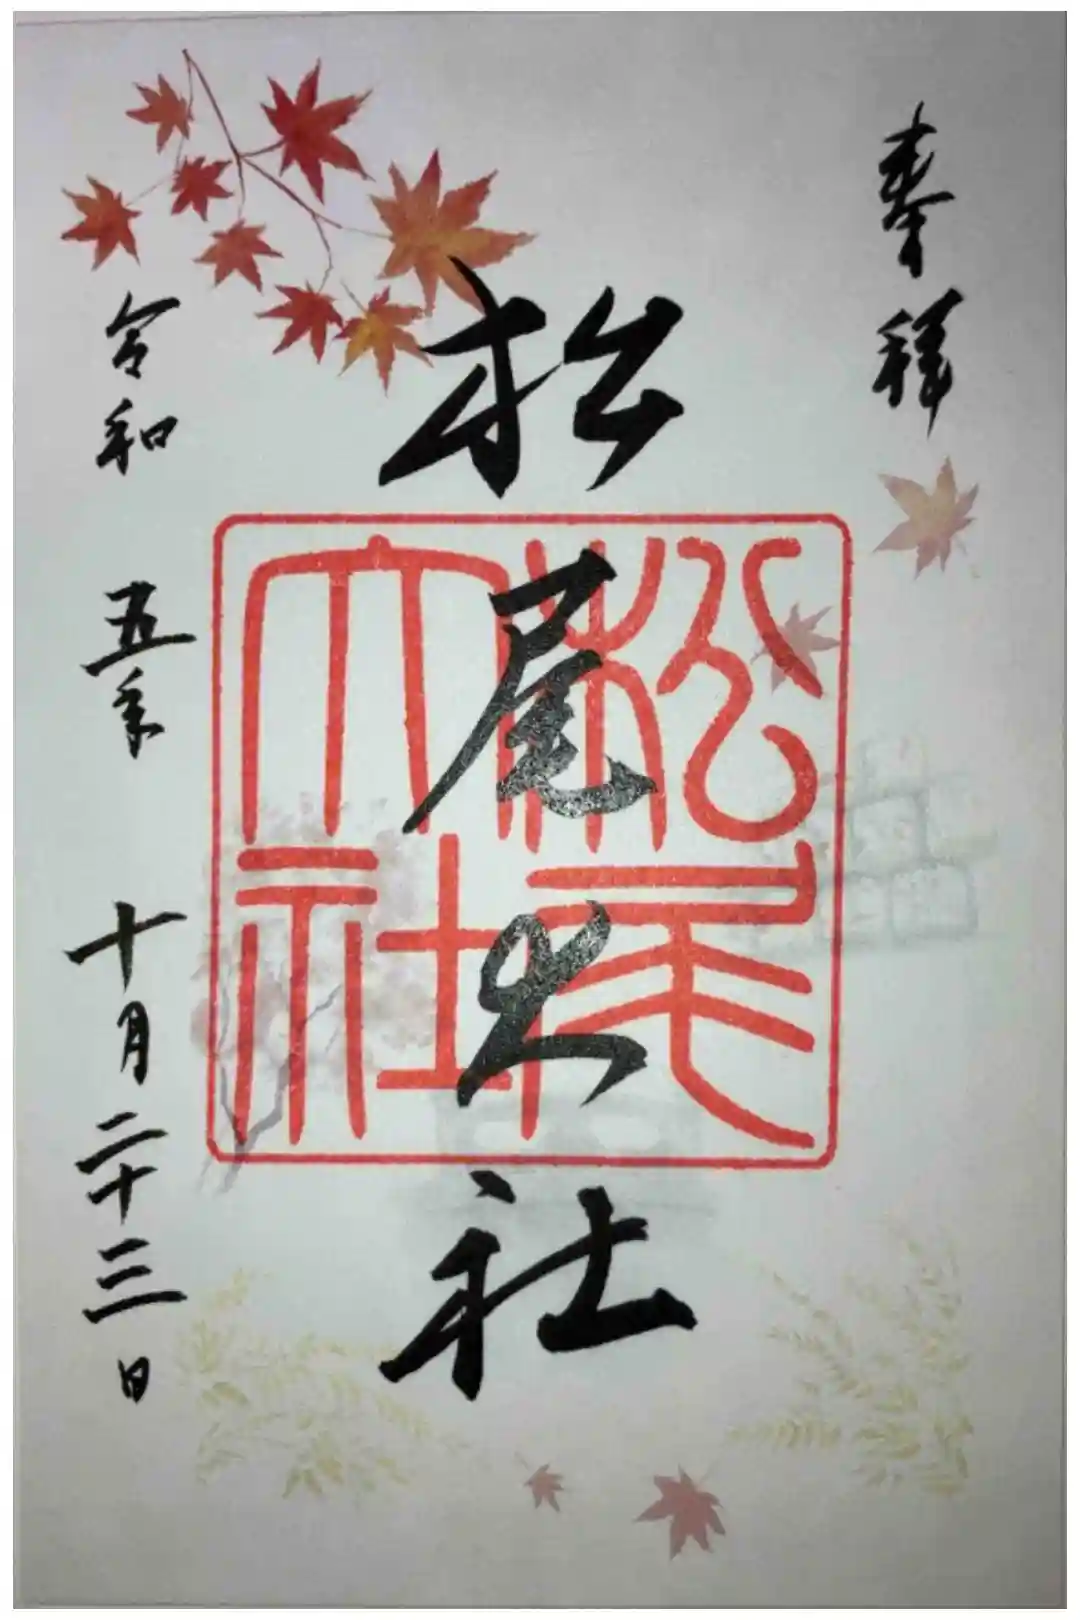 奉拝
松尾大社
松尾大社
令和五年十月二十三日